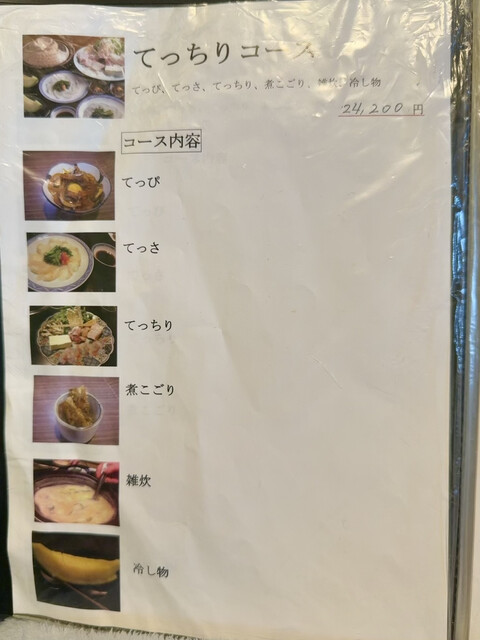 てっちりコース
てっぴ、てっさ、てっちり、煮こごり、雑炊、冷し物
24,200 円
コース内容
てっぴ
てっさ
てっちり
煮こごり
雑炊
冷し物